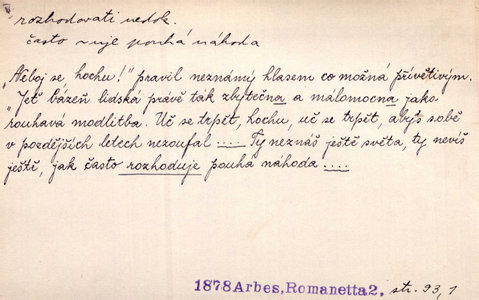 rozhodovati nedok.
často -uje pouhá náhoda
„Neboj se, hochu!" pravil neznámý hlasem co možná přívětivým.
„Jeť bázeň lidská právě tak zbytečna a málomocna jako
rouhavá modlitba. Uč se trpět, hochu, uč se trpět, abys sobě
v pozdějších letech nezoufal .... Ty neznáš ještě světa, ty nevíš
ještě, jak často rozhoduje pouhá náhoda ....
1878 Arbes, Romanetta 2. str. 93, 1